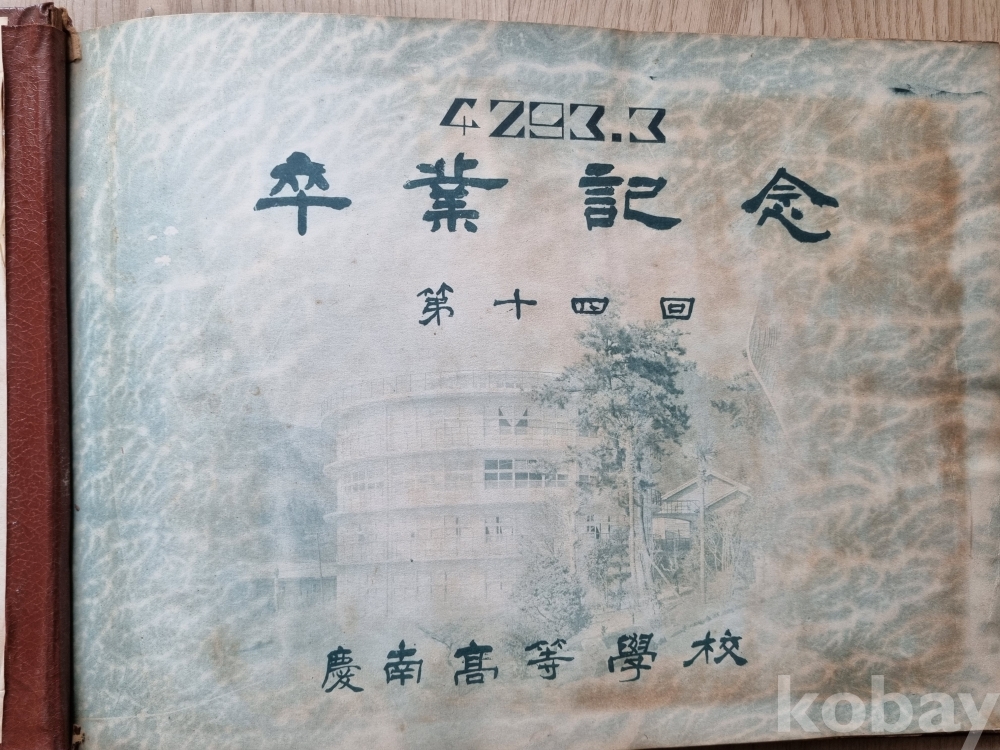 4293.3
卒業記念
第十四回
慶南高等學校
kobay